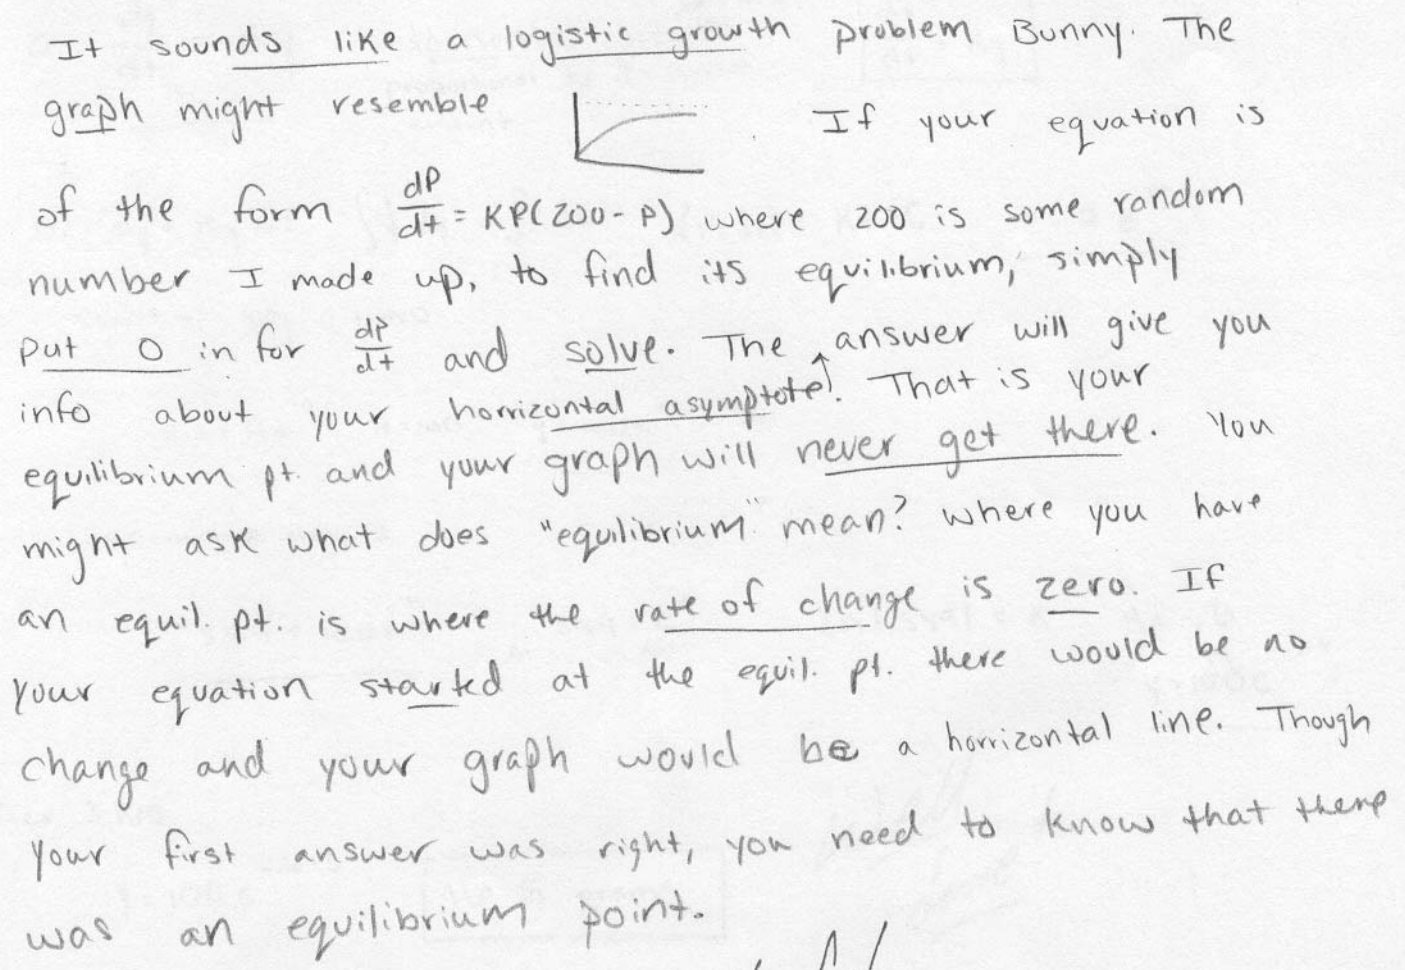 It sounds like a logistic growth problem Bunny. The
graph might resemble If your equation is
of the form dP/dt = KP(200-P) where 200 is some random
number I made up, to find its equilibrium, simply
put 0 in for dP/dt and solve. The answer will give you
info about your horrizontal asymptote!. That is your
equilibrium pt. and your graph will never get there. You
might ask what does "equilibrium" mean? Where you have
an equil. pt. is where the rate of change is zero. If
your equation started at the equil. pt. there would be no
change and your graph would be a horrizontal line. Though
your first answer was right, you need to know that there
was an equilibrium point.